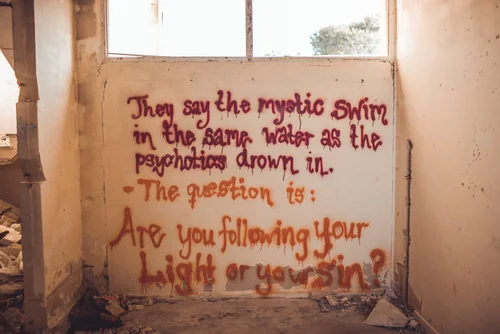 They say the mystic swim
in the same water as the
psychotics drown in.
- The question is:
Are you following your
Light or your sin?